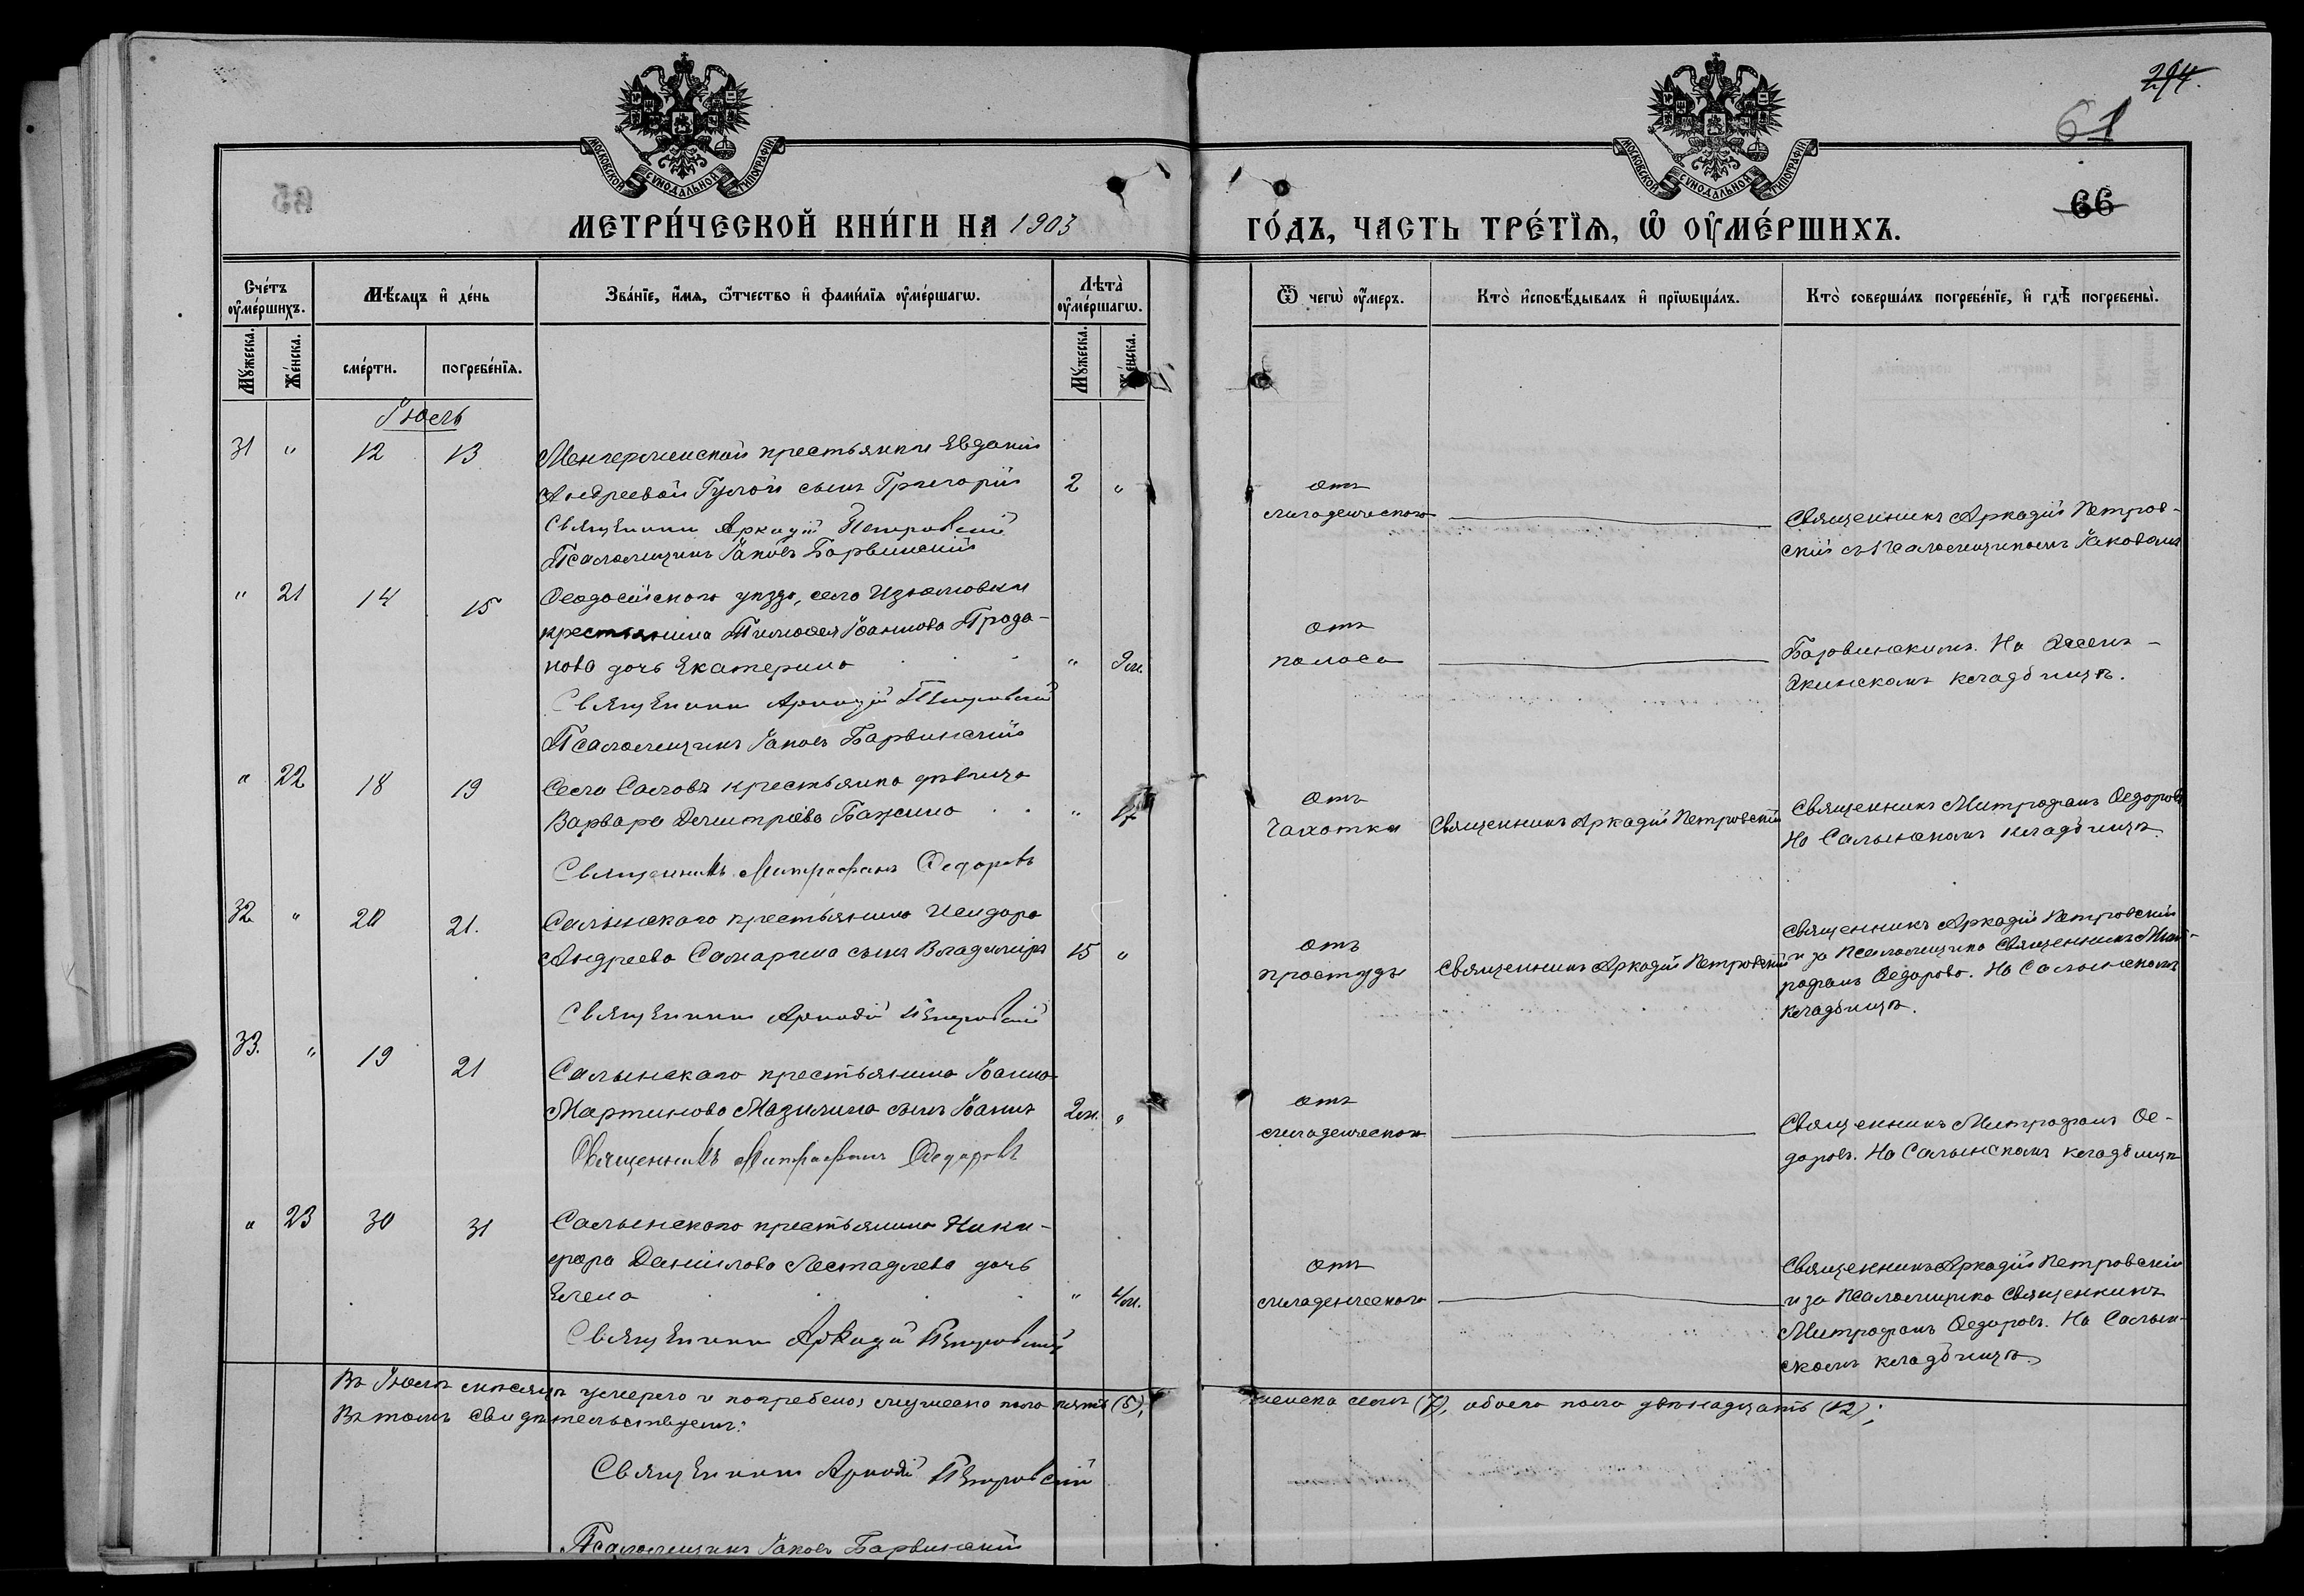 294.
61
66
65
МОСКОВСКОЙ СУНОДАЛЬНОЙ ТИПОГРАФІИ
МОСКОВСКОЙ СУНОДАЛЬНОЙ ТИПОГРАФІИ
МЕТРИ́ЧЕСКОЙ КНИ́ГИ НА 1903 ГО́ДЪ, ЧАСТЬ ТРЕ́ТЇѦ, Ѡ҆ ОУ҆МЕ́РШИХЪ.
Сче́тъ оу҆ме́ршихъ.
Мѣ́сяцъ и҆ де́нь
Зва́нїе, и҆́мя, ѻ҆́тчество и҆ фами́лїя оу҆ме́ршагѡ.
Лѣта̀ оу҆ме́ршагѡ.
Ѿ чегѡ̀ оу҆́меръ.
Кто̀ и҆сповѣ́дывалъ и҆ прїѡбща́лъ.
Кто̀ соверша́лъ погребе́нїе, и҆ гдѣ̀ погребены̀.
Му́жеска.
Же́нска.
сме́рти.
погребе́нїя.
Му́жеска.
Же́нска.
Іюль
31 " 12 13 крестьянки Евдокіи
Андреевой Гулой сынъ Григорій 2 "
Священникъ Аркадій Петровскій
Псаломщикъ Іаковъ Барвинскій
отъ
младенческаго
Священникъ Аркадій Петров-
скій съ Псаломщикомъ Іаковомъ
" 21 14 15 Ѳеодосійскаго уѣзда, села Изюмовки
крестьянина Тимоѳея Іоаннова Прода-
нова дочь Екатерина " 9 м.
Священникъ Аркадій Петровскій
Псаломщикъ Іаковъ Барвинскій
отъ
поноса
Барвинскимъ. На
кладбищѣ.
" 22 18 19 Села Саловъ крестьянка дѣвица
Варвара Димитріева Бажина "
Священникъ Митрофанъ Ѳедоровъ
отъ
чахотки
Священникъ Аркадій Петровскій
Священникъ Митрофанъ Ѳедоровъ
На Салынскомъ кладбищѣ.
32 " 20 21. Салынскаго крестьянина Исидора
Андреева Самарина сынъ Владиміръ 15 "
Священникъ Аркадій Петровскій
отъ
простуды
Священникъ Аркадій Петровскій
Священникъ Аркадій Петровскій
и за Псаломщика Священникъ Мит-
рофанъ Ѳедоровъ. На Салынскомъ
кладбищѣ.
33. " 19 21 Салынскаго крестьянина Іоанна
Мартинова Мазилина сынъ Іоаннъ 2 м. "
Священникъ Митрофанъ Ѳедоровъ
отъ
младенческаго
Священникъ Митрофанъ Ѳе-
доровъ. На Салынскомъ кладбищѣ
" 23 30 31 Салынскаго крестьянина Ники-
фора Даніилова дочь
Елена " 4 м.
Священникъ Аркадій Петровскій
отъ
младенческаго
Священникъ Аркадій Петровскій
и за Псаломщика Священникъ
Митрофанъ Ѳедоровъ. На Салын-
скомъ кладбищѣ.
Въ Іюлѣ мѣсяцѣ умерло и погребено: мужеска пола пять (5), женска семь (7), обоего пола двѣнадцать (12);
Въ томъ свидѣтельствуемъ:
Священникъ Аркадій Петровскій
Псаломщикъ Іаковъ Барвинскій